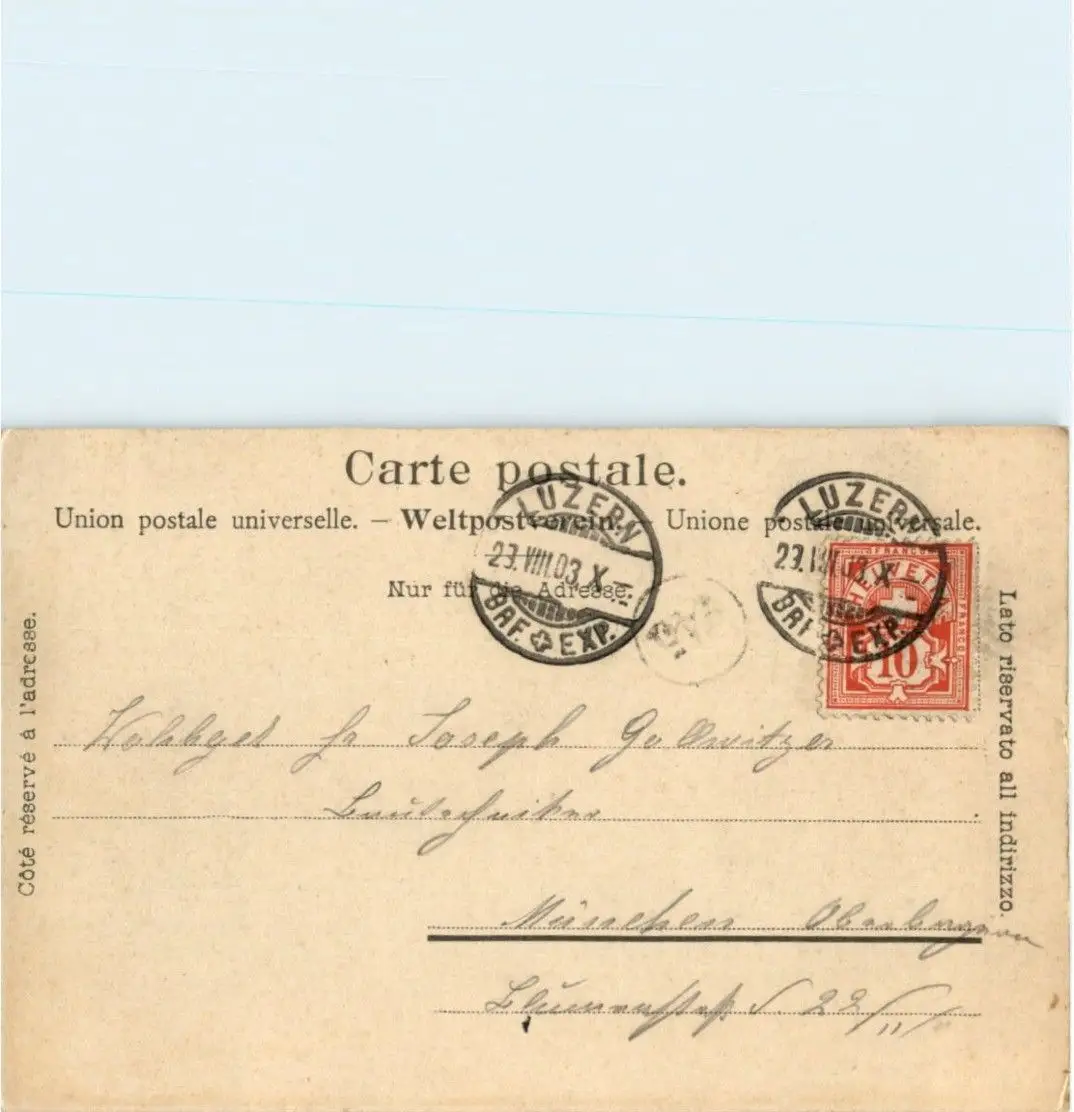 Carte postale.
Union postale universelle. – Weltpostverein. – Unione postale universale.
Nur für die Adresse.
LUZERN
29.VIII.03.X-
BRF. EXP.
LUZERN
29.VIII.03.X-
BRF. EXP.
FRANCO
HELVETIA
FRANCO
10
Côté réservé à l'adresse.
Lato riservato all indirizzo.
Joseph Gollwitzer
Bautechniker
München Oberbayern
Blumenstraß 22/II